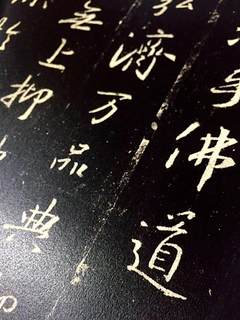 乎佛道
弘濟万品典
無上抑